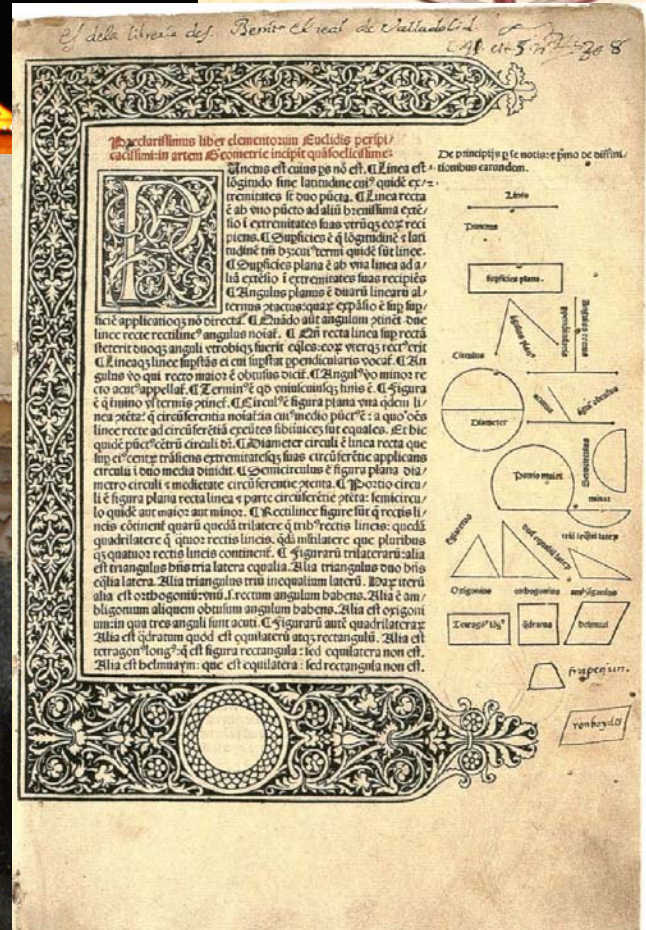 Es dela libreria de s. Benito el real de Valladolid
Preclarissimus liber elementorum Euclidis perspi/
cacissimi: in artem Geometrie incipit quãfoelicissime:
Punctus est cuius ps nõ est. ¶ Linea est
lõgitudo sine latitudine cui⁹ quidẽ ex/
tremitates st duo pũcta. ¶ Linea recta
ẽ ab vno pũcto ad aliũ breuissima extẽ/
sio ĩ extremitates suas vtrũqꝫ eoꝝ reci
piens. ¶ Supficies ẽ q̃ lõgitudinẽ ⁊ lati
tudinẽ tm̃ hꝫ: cui⁹ termi quidẽ sũt linee.
¶ Supficies plana ẽ ab vna linea ad a/
liã extẽsio ĩ extremitates suas recipiẽs
¶ Angulus planus ẽ duarũ linearũ al/
ternus ꝯtactus: quaꝝ expãsio ẽ sup sup/
ficiẽ applicatioqꝫ nõ directa. ¶ Quãdo aũt angulum ꝯtinẽt due
linee recte rectiline⁹ angulus noiat̃. ¶ Qñ recta linea sup rectã
steterit duoqꝫ anguli vtrobiqꝫ fuerit eq̃les: eoꝝ vterqꝫ rect⁹ erit
¶ Lineaqꝫ linee supstãs ei cui supstat ppendicularis vocat̃. ¶ An
gulus vo qui recto maior ẽ obtusus dicit̃. ¶ Angul⁹ vo minor re
cto acut⁹ appellat̃. ¶ Termin⁹ ẽ qđ vniuscuiusqꝫ finis ẽ. ¶ Figura
ẽ q̃ tmino vl̃ termis ꝯtinet̃. ¶ Circul⁹ ẽ figura plana vna qdem li/
nea ꝯtẽta: q̃ circũferentia noiat̃: in cui⁹ medio pũct⁹ ẽ: a quo oẽs
linee recte ad circũferẽtiã exeũtes sibiinuicẽ sũt equales. Et hic
quidẽ pũct⁹ cẽtrũ circuli dr̃. ¶ Diameter circuli ẽ linea recta que
sup ei⁹ centꝝ trãsiens extremitatesqꝫ suas circũferẽtie applicans
circulũ ĩ duo media diuidit. ¶ Semicirculus ẽ figura plana dia/
metro circuli ⁊ medietate circũferentie ꝯtenta. ¶ Portio circu/
li ẽ figura plana recta linea ⁊ parte circũferẽtie ꝯtẽta: semicircu/
lo quidẽ aut maior aut minor. ¶ Rectilinee figure sũt q̃ rectis li/
neis cõtinent̃ quarũ quedã trilatere q̃ trib⁹ rectis lineis: quedã
quadrilatere q̃ qtuor rectis lineis. qdã mltilatere que pluribus
qꝫ quatuor rectis lineis continent̃. ¶ Figurarũ trilaterarũ: alia
est triangulus hñs tria latera equalia. Alia triangulus duo hñs
eq̃lia latera. Alia triangulus triũ inequalium laterũ. Haꝝ iterũ
alia est orthogoniũ: vnũ .s. rectum angulum habens. Alia ẽ am/
bligonium aliquem obtusum angulum habens. Alia est oxigoni
um: in qua tres anguli sunt acuti. ¶ Figurarũ aũt quadrilateraꝝ
Alia est q̃dratum quod est equilaterũ atqꝫ rectangulũ. Alia est
tetragon⁹ long⁹: q̃ est figura rectangula: sed equilatera non est.
Alia est helmuaym: que est equilatera: sed rectangula non est.
De principijs p se notis: ⁊ pmo de diffini/
tionibus earundem.
Linea
Punctus
Supficies plana.
Circulus
Diameter
Portio maior
Semicirculus
minor
Oxigonius
orthogonius
ambligonius
Tetragon⁹ lōg⁹
q̃dratus
helmuaī
ronboydes